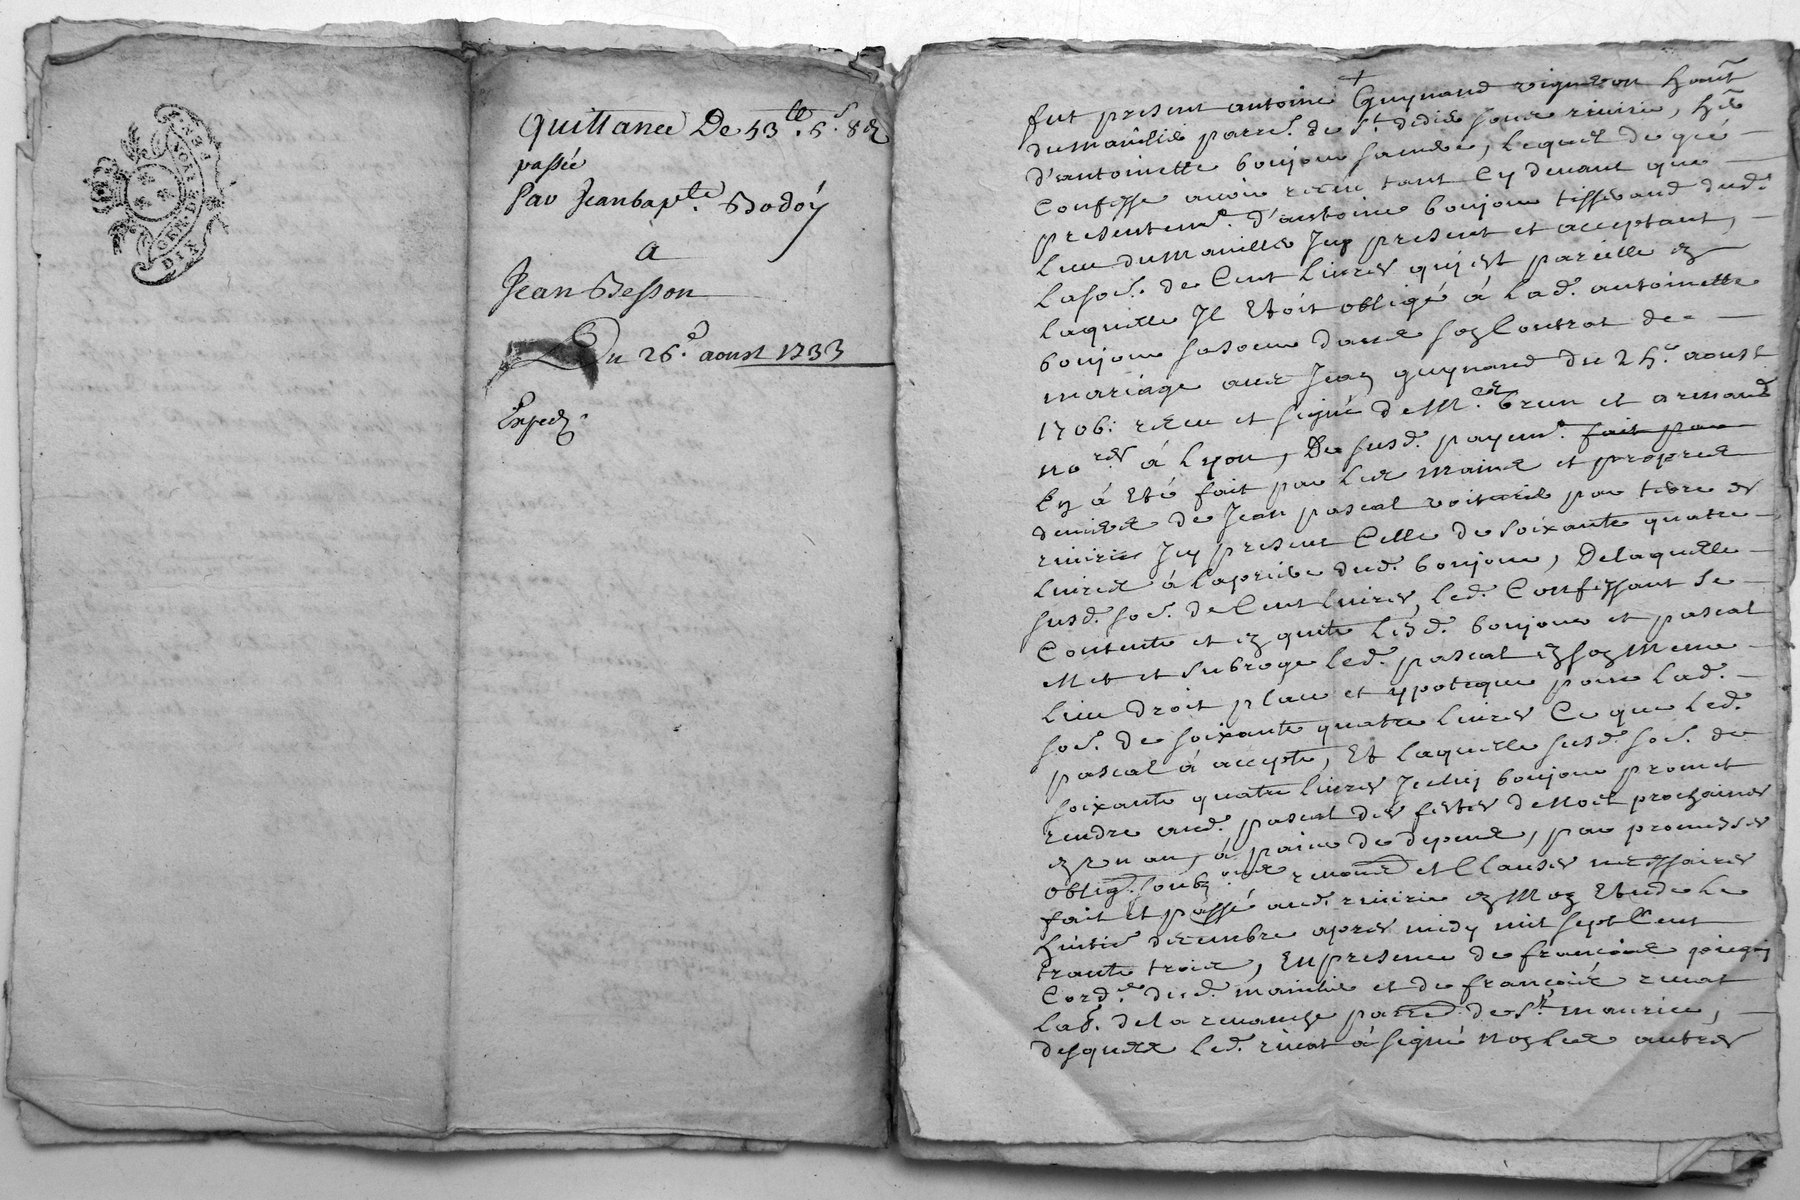 GEN. DE LYON
DIX
Quittance De 53 lt. 6 s. 8 d
passée
Par Jean bapte. Bodoÿ
a
Jean Besson
Du 26e. aoust 1733
Exped.
fut present antoine Guynand vigneron habt
du mainilie parre. de st. didier sous rivirie,
d'antoinette boujou sa mere, lequel de gré
Confesse avoir receu tant Cy devant que
presentemt. d'antoine boujou tisserand dud.
lieu du mainilie Icy present et acceptant,
la somme de Cent livres quj est pareille
laquelle Il Etoit obligé à lad. antoinette
boujou sa soeur dans son Contrat de
mariage avec Jean guynand du 25e. aoust
1706. receu et signé de Me. brun et armand
nores à Lyon, De susd. payemt. fait par
En à Eté fait par les mains et propres
deniers de Jean pascal voiturie par terre de
rivirie Icy present Celle de soixante quatre
livres à la priere dud. boujou, De laquelle
susd. some. de Cent livres, led. Confessant se
Contente et en quitte lesd. boujou et pascal
Met et subroge led. pascal en son meme
lieu droit place et ypoteque pour lad.
some. de soixante quatre livres Ce que led.
pascal à accepté, Et laquelle susd. some. de
soixante quatre livres Iceluj boujou promet
rendre aud. pascal des festes de Noel prochaines
en un an, à peine de depens, par promesses
oblig. soub. renonc. et Clauses necessaires
fait et passé aud. rivirie en Mon Etude le
huitie decembre apres midy mil sept Cent
trante trois, En presence de françois
Cord. dud. mainilie et de françois rivat
lab. de la revanche parre. de st. maurice,
desquels led. rivat à signé non les autres